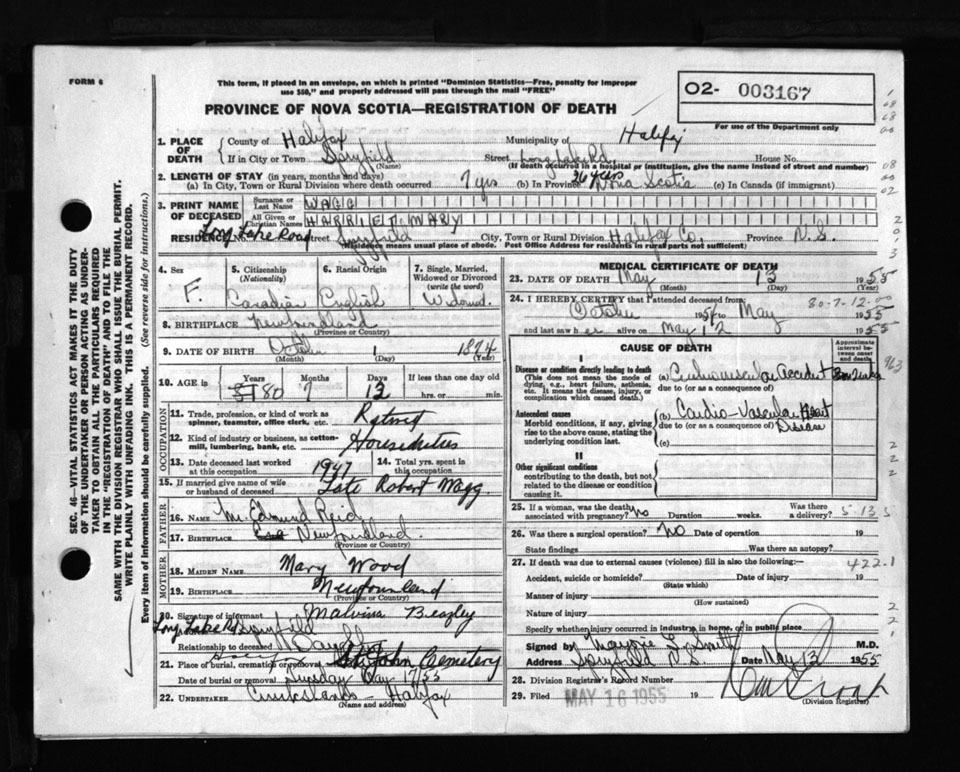 FORM 6
This form, if placed in an envelope, on which is printed "Dominion Statistics—Free, penalty for improper
use $50," and properly addressed will pass through the mail "FREE"
PROVINCE OF NOVA SCOTIA—REGISTRATION OF DEATH
02- 003167
For use of the Department only
1. PLACE OF DEATH
County of Halifax Municipality of Halifax
If in City or Town Spryfield Street Long Lake Rd. House No.
(Name) (If death occurred in a hospital or institution, give the name instead of street and number)
2. LENGTH OF STAY (in years, months and days)
(a) In City, Town or Rural Division where death occurred 7 yrs (b) In Province 36 yrs Nova Scotia (c) In Canada (if immigrant)
3. PRINT NAME OF DECEASED
Surname or Last Name WAGG
All Given or Christian Names HARRIET MARY
RESIDENCE No. Long Lake Road Street Spryfield City, Town or Rural Division Halifax Co. Province N.S.
(Residence means usual place of abode. Post Office Address for residents in rural parts not sufficient)
4. Sex F.
5. Citizenship (Nationality) Canadian
6. Racial Origin English
7. Single, Married, Widowed or Divorced (write the word) Widowed.
8. BIRTHPLACE Newfoundland
(Province or Country)
9. DATE OF BIRTH October 1 1874
(Month) (Day) (Year)
10. AGE in Years 80 Months 7 Days 12 If less than one day hrs. or min.
OCCUPATION
11. Trade, profession, or kind of work as spinner, teamster, office clerk, etc. Retired
12. Kind of industry or business, as cotton-mill, lumbering, bank, etc. Housduties
13. Date deceased last worked at this occupation 1947
14. Total yrs. spent in this occupation
15. If married give name of wife or husband of deceased Late Robert Wagg.
FATHER
16. NAME Mr. Edmund Reid
17. BIRTHPLACE Newfoundland.
(Province or Country)
MOTHER
18. MAIDEN NAME Mary Wood
19. BIRTHPLACE Newfoundland
(Province or Country)
20. Signature of informant Malvina Beazley
Long Lake Rd Spryfield
Relationship to deceased Daughter
21. Place of burial, cremation or removal St. John Cemetery
Date of burial or removal May 17/55
22. UNDERTAKER Cruickshanks - Halifax
(Name and address)
MEDICAL CERTIFICATE OF DEATH
23. DATE OF DEATH May 13 1955
(Month) (Day) (Year)
24. I HEREBY CERTIFY that I attended deceased from
80-7-12-00
October 1954 to May 1955
and last saw her alive on May 12 1955
CAUSE OF DEATH
Approximate interval between onset and death
I
Disease or condition directly leading to death
(This does not mean the mode of dying, e.g., heart failure, asthenia, etc. It means the disease, injury, or complication which caused death.)
(a) Cerebrovascular Accident
due to (or as a consequence of)
Antecedent causes
Morbid conditions, if any, giving rise to the above cause, stating the underlying condition last.
(b) Cardio-Vascular Heart Disease
due to (or as a consequence of)
(c)
II
Other significant conditions
contributing to the death, but not related to the disease or condition causing it.
25. If a woman, was the death associated with pregnancy? No Duration weeks. Was there a delivery?
5-13 5
26. Was there a surgical operation? No Date of operation 19
State findings Was there an autopsy?
27. If death was due to external causes (violence) fill in also the following:
422.1
Accident, suicide or homicide? Date of injury 19
(State which)
Manner of injury
(How sustained)
Nature of injury
Specify whether injury occurred in industry, in home, or in public place
Signed by Smith M.D.
Address Spryfield N.S. Date May 13 1955
28. Division Registrar's Record Number
29. Filed MAY 16 1955 19
(Division Registrar)
SEC. 46—VITAL STATISTICS ACT MAKES IT THE DUTY
OF THE UNDERTAKER OR PERSON ACTING AS UNDER-
TAKER TO OBTAIN ALL THE PARTICULARS REQUIRED
IN THE "REGISTRATION OF DEATH" AND TO FILE THE
SAME WITH THE DIVISION REGISTRAR WHO SHALL ISSUE THE BURIAL PERMIT.
WRITE PLAINLY WITH UNFADING INK. THIS IS A PERMANENT RECORD.
Every item of information should be carefully supplied. (See reverse side for instructions.)